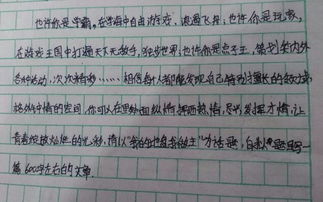 也许你是学霸，在学海中自由游弋，浪遏飞舟；也许你是玩家，
在游戏王国中打遍天下无敌手，独步世界；也许你是点子王，策划案内外
各种活动，次次精彩……相信每个人都能发现自己特别擅长的领域
独特的空间，你可以在里外面纵情挥洒热情，尽兴发挥才情，让
青春绽放灿烂的光彩。请以“我的地盘我做主”为话题，自拟题目写一
篇600字左右的文章。